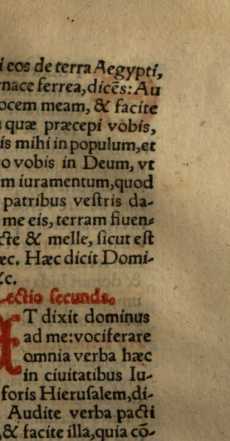 i eos de terra Aegypti,
nace ferrea, dicẽs: Au
ocem meam, & facite
quæ præcepi vobis,
is mihi in populum, et
o vobis in Deum, vt
m iuramentum, quod
patribus vestris da-
me eis, terram fluen-
cte & melle, sicut est
ec. Hæc dicit Domi-
&c.
Lectio secunda.
ET dixit dominus
ad me: vociferare
omnia verba hæc
in ciuitatibus Iu-
foris Hierusalem, di-
Audite verba pacti
, & facite illa, quia cō-